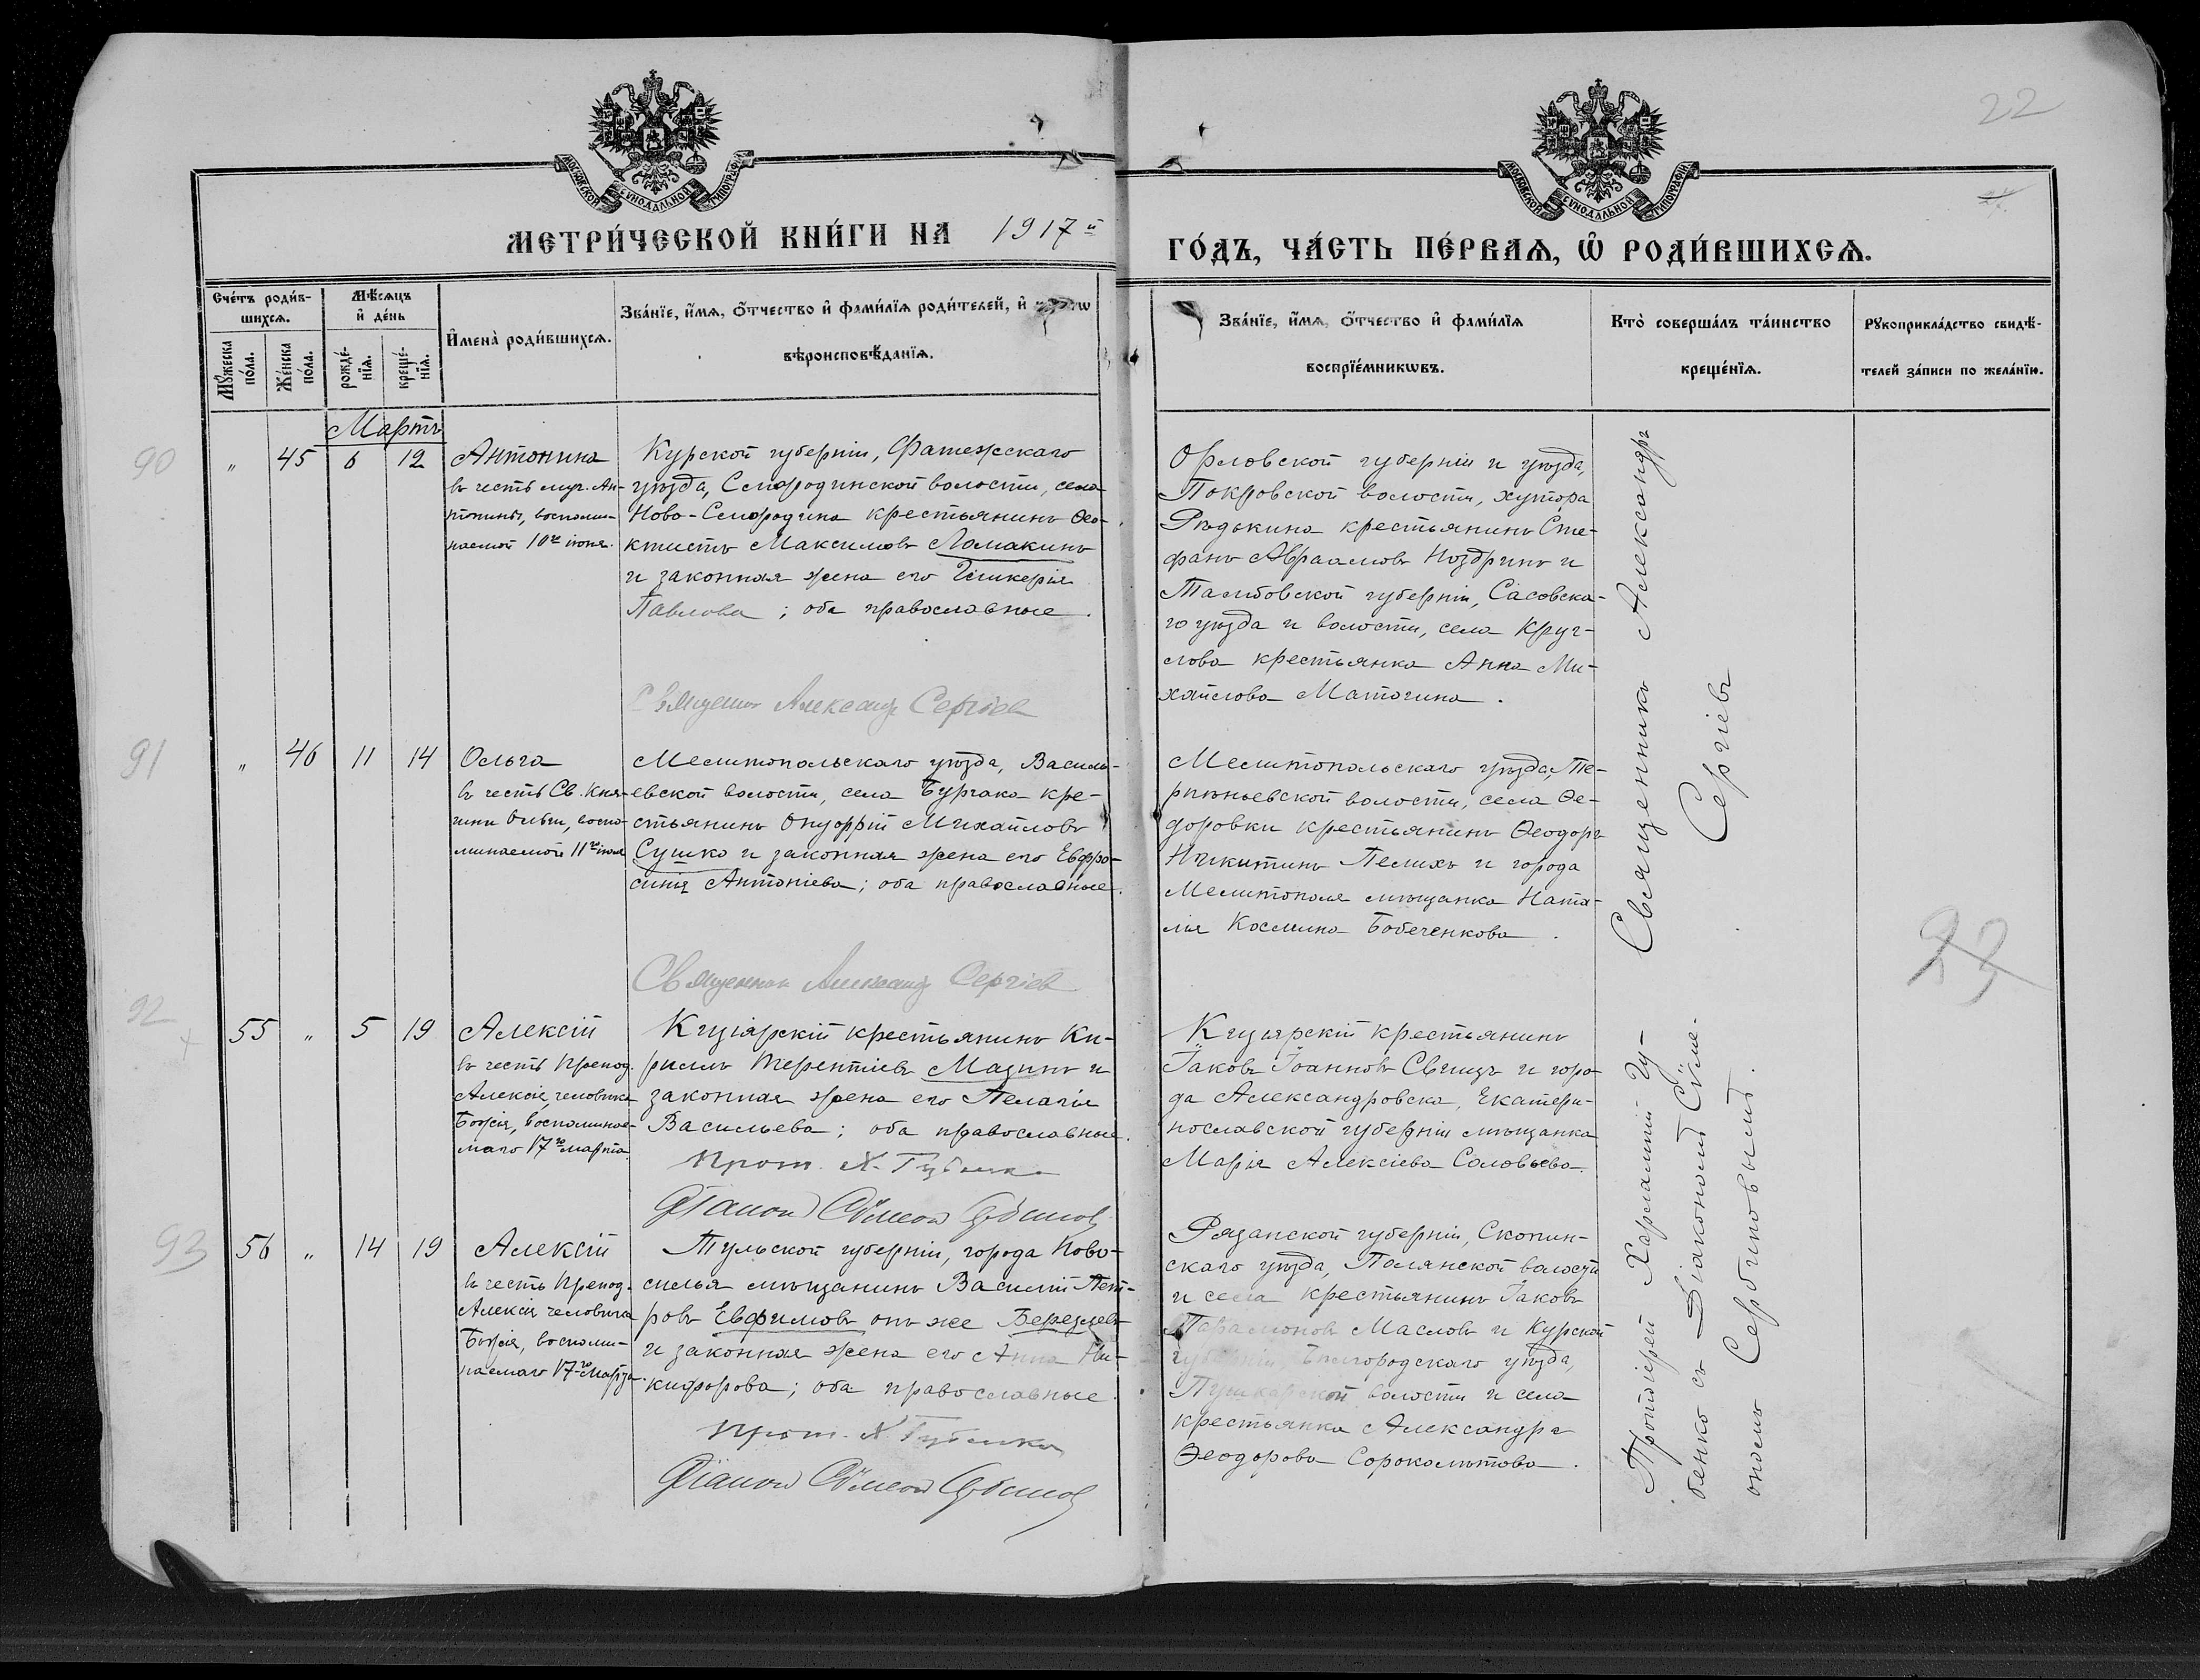 22
МОСКОВСКОЙ СѴНОДАЛЬНОЙ ТИПОГРАФІИ
МОСКОВСКОЙ СѴНОДАЛЬНОЙ ТИПОГРАФІИ
МЕТРИ́ЧЕСКОЙ КНИ́ГИ НА 1917й
ГО́ДЪ, ЧА́СТЬ ПЕ́РВАѦ, Ѡ҆ РОДИ́ВШИХСѦ.
Сче́тъ роди́в-
шихсѧ.
Мꙋ́жеска по́ла.
Же́нска по́ла.
Мѣ́сѧцъ
и҆ де́нь
рожде́-
нїѧ.
креще́-
нїѧ.
И҆мена̀ роди́вшихсѧ.
Зва́нїе, и҆́мѧ, о҆́тчество и҆ фами́лїѧ роди́телей, и҆
вѣроисповѣ́данїѧ.
Зва́нїе, и҆́мѧ, о҆́тчество и҆ фами́лїѧ
воспрїе́мникѡвъ.
Кто̀ соверша́лъ та́инство
креще́нїѧ.
Рꙋкоприкла́дство свидѣ́-
телей за́писи по жела́нїю.
Мартъ
90
" 45 6 12
Антонина
въ честь муч. Ан-
тонины, воспоми-
наемой 10го іюня.
Курской губерніи, Фатежскаго
уѣзда, Смородинской волости, села
Ново-Смородина крестьянинъ Ѳео-
ктистъ Максимовъ Ломакинъ
и законная жена его Гликерія
Павлова; оба православные.
Священ Александръ Сергіев
Орловской губерніи и уѣзда,
Покровской волости, хутора
Рѣдькина крестьянинъ Сте-
фанъ Авраамовъ Ноздринъ и
Тамбовской губерніи, Сасовска-
го уѣзда и волости, села Круг-
лова крестьянка Анна Ми-
хайлова Маточина.
Священникъ Александръ
Сергіевъ
91
" 46 11 14
Ольга
въ честь Св. Кня-
гини Ольги, воспо-
минаемой 11го іюля
Мелитопольскаго уѣзда, Василь-
евской волости, села Бурчака кре-
стьянинъ Онуфрій Михайловъ
Сушко и законная жена его Евфро-
синія Антоніева; оба православные.
Священник Александръ Сергіев
Мелитопольскаго уѣзда, Те-
рпѣньевской волости, села Ѳе-
доровки крестьянинъ Ѳеодоръ
Никитинъ Пелихъ и города
Мелитополя мѣщанка Ната-
лія Косьмина Бобеченкова.
92
55 " 5 19
Алексій
въ честь Препод.
Алексія, человѣка
Божія, воспоминае-
маго 17го марта.
Кизіярскій крестьянинъ Ки-
риллъ Терентіевъ Мазинъ и
законная жена его Пелагія
Васильева; оба православные.
Прот. Х. Губенко
Діакон Сѵмеон Сербинов
Кизіярскій крестьянинъ
Іаковъ Іоанновъ Свищъ и горо-
да Александровска, Екатери-
нославской губерніи мѣщанка
Марія Алексіева Соловьева.
Протоіерей Харлампій Гу-
бенко съ Діакономъ Сѵме-
ономъ Сербиновымъ.
93
56 " 14 19
Алексій
въ честь Препод.
Алексія человѣка
Божія, воспоми-
наемаго 17го Марта.
Тульской губерніи, города Ново-
силья мѣщанинъ Василій Пет-
ровъ Евфимовъ онъ же Березлевъ
и законная жена его Анна Ни-
кифорова; оба православные.
Прот. Х. Губенко
Діакон Сѵмеон Сербинов
Рязанской губерніи, Скопин-
скаго уѣзда, Полянской волости
и села крестьянинъ Іаковъ
Парамоновъ Масловъ и Курской
губерніи Бѣлгородскаго уѣзда,
Пушкарской волости и села
крестьянка Александра
Ѳеодорова Сороколѣтова.
23